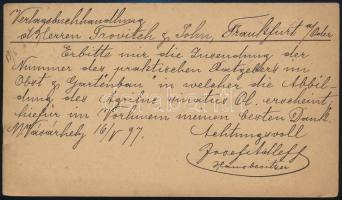 Verlagsbuchhandlung
d. Herren Trowitzsch & Sohn, Frankfurt a/Oder
Erbitte mir die Zusendung der
Nummer des praktischen Ratgebers im
Obst & Gartenbau in welcher die Abbil-
dung des Agrilus sinuatus Ol. erscheint,
hiefür im Vorhinein meinen besten Dank
M Vásárhely 16/V 97.
Achtungsvoll
Josef
Hausbesitzer